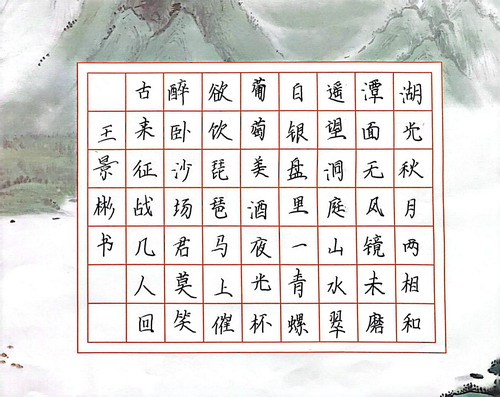 湖光秋月两相和
潭面无风镜未磨
遥望洞庭山水翠
白银盘里一青螺
葡萄美酒夜光杯
欲饮琵琶马上催
醉卧沙场君莫笑
古来征战几人回
王景彬书